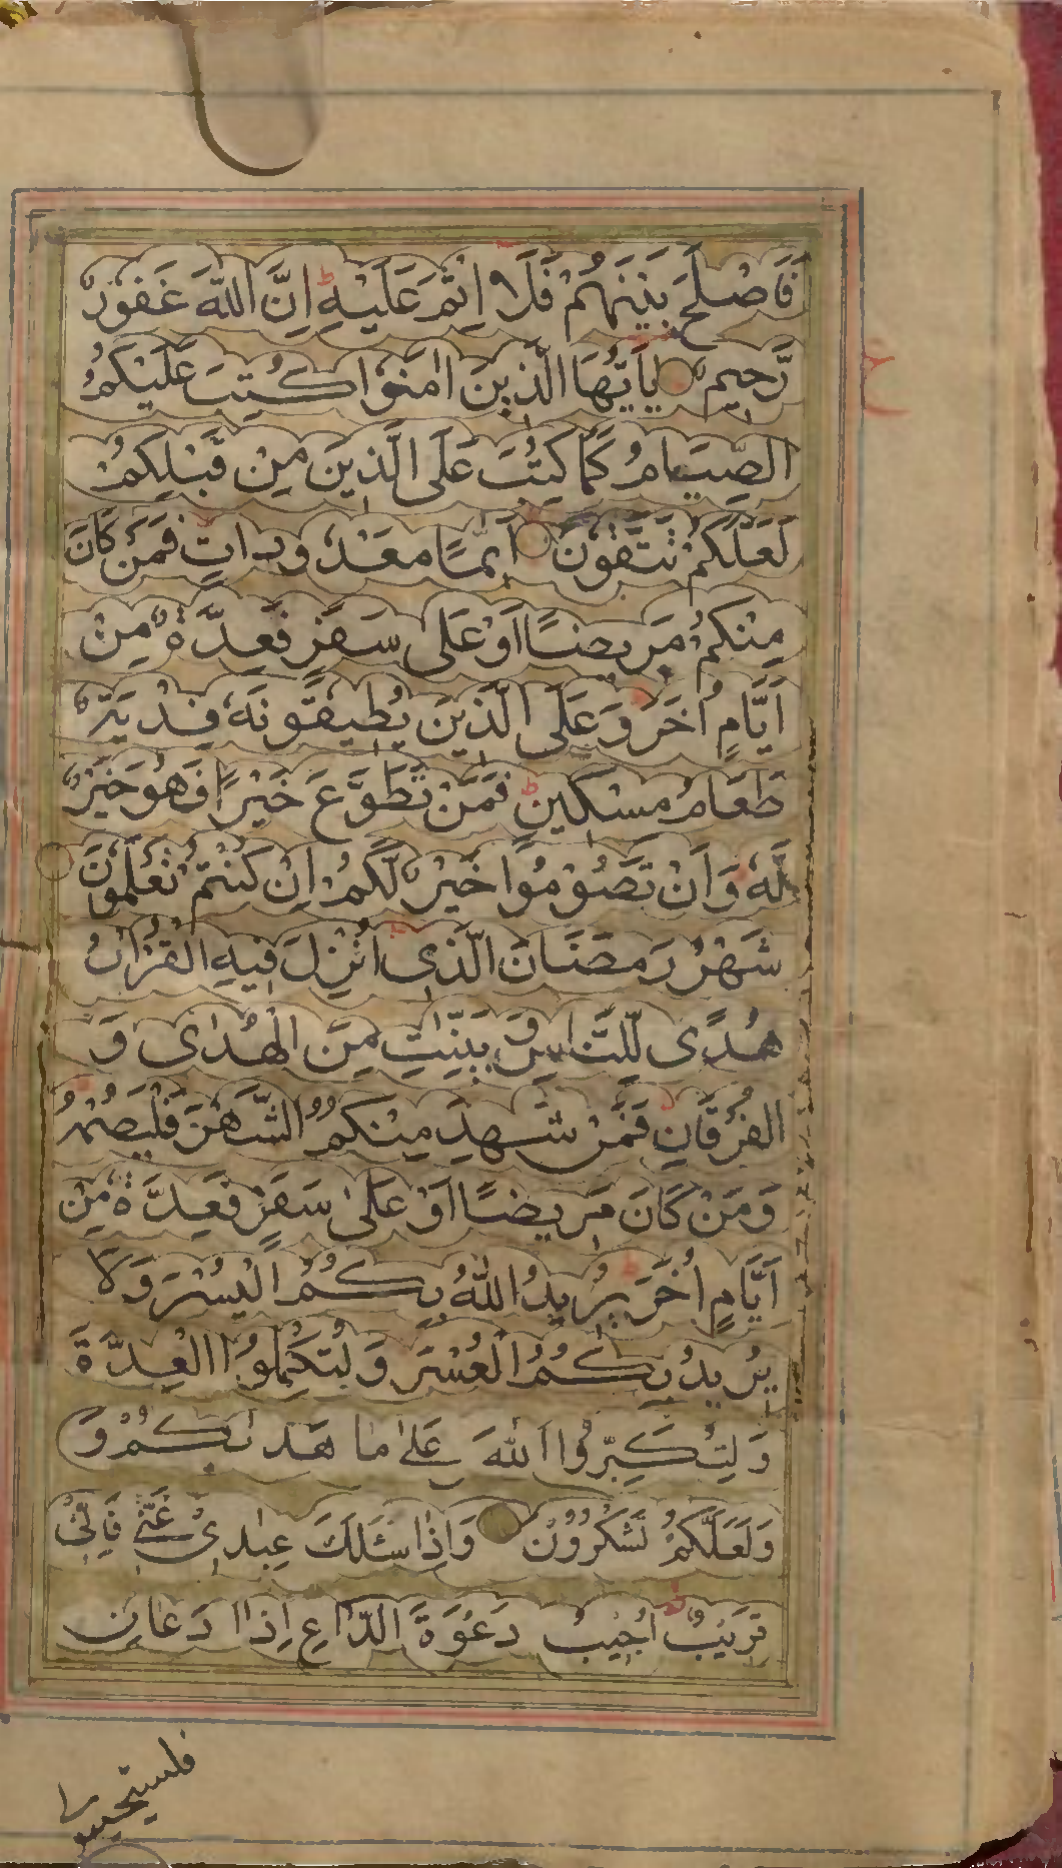 فَاَصْلَحَ بَيْنَهُمْ فَلَا اِثْمَ عَلَيْهِ ط اِنَّ اللّٰهَ غَفُوْرٌ
رَّحِيْمٌ يٰاَيُّهَا الَّذِيْنَ اٰمَنُوْا كُتِبَ عَلَيْكُمُ
الصِّيَامُ كَمَا كُتِبَ عَلَى الَّذِيْنَ مِنْ قَبْلِكُمْ
لَعَلَّكُمْ تَتَّقُوْنَ اَيَّامًا مَعْدُوْدَاتٍ ط فَمَنْ كَانَ
مِنْكُمْ مَرِيْضًا اَوْ عَلٰى سَفَرٍ فَعِدَّةٌ مِنْ
اَيَّامٍ اُخَرَ ط وَعَلَى الَّذِيْنَ يُطِيْقُوْنَهٗ فِدْيَةٌ
طَعَامُ مِسْكِيْنٍ ط فَمَنْ تَطَوَّعَ خَيْرًا فَهُوَ خَيْرٌ
لَهٗ ط وَاَنْ تَصُوْمُوْا خَيْرٌ لَّكُمْ اِنْ كُنْتُمْ تَعْلَمُوْنَ
شَهْرُ رَمَضَانَ الَّذِيْ اُنْزِلَ فِيْهِ الْقُرْاٰنُ
هُدًى لِّلنَّاسِ وَبَيِّنٰتٍ مِّنَ الْهُدٰى وَ
الْفُرْقَانِ ج فَمَنْ شَهِدَ مِنْكُمُ الشَّهْرَ فَلْيَصُمْهُ ط
وَمَنْ كَانَ مَرِيْضًا اَوْ عَلٰى سَفَرٍ فَعِدَّةٌ مِّنْ
اَيَّامٍ اُخَرَ ط يُرِيْدُ اللّٰهُ بِكُمُ الْيُسْرَ وَلَا
يُرِيْدُ بِكُمُ الْعُسْرَ وَلِتُكْمِلُوا الْعِدَّةَ
وَلِتُكَبِّرُوا اللّٰهَ عَلٰى مَا هَدٰىكُمْ وَ
وَلَعَلَّكُمْ تَشْكُرُوْنَ وَاِذَا سَئَلَكَ عِبَادِيْ عَنِّيْ فَاِنِّيْ
قَرِيْبٌ ط اُجِيْبُ دَعْوَةَ الدَّاعِ اِذَا دَعَانِ
فليستجيبوا